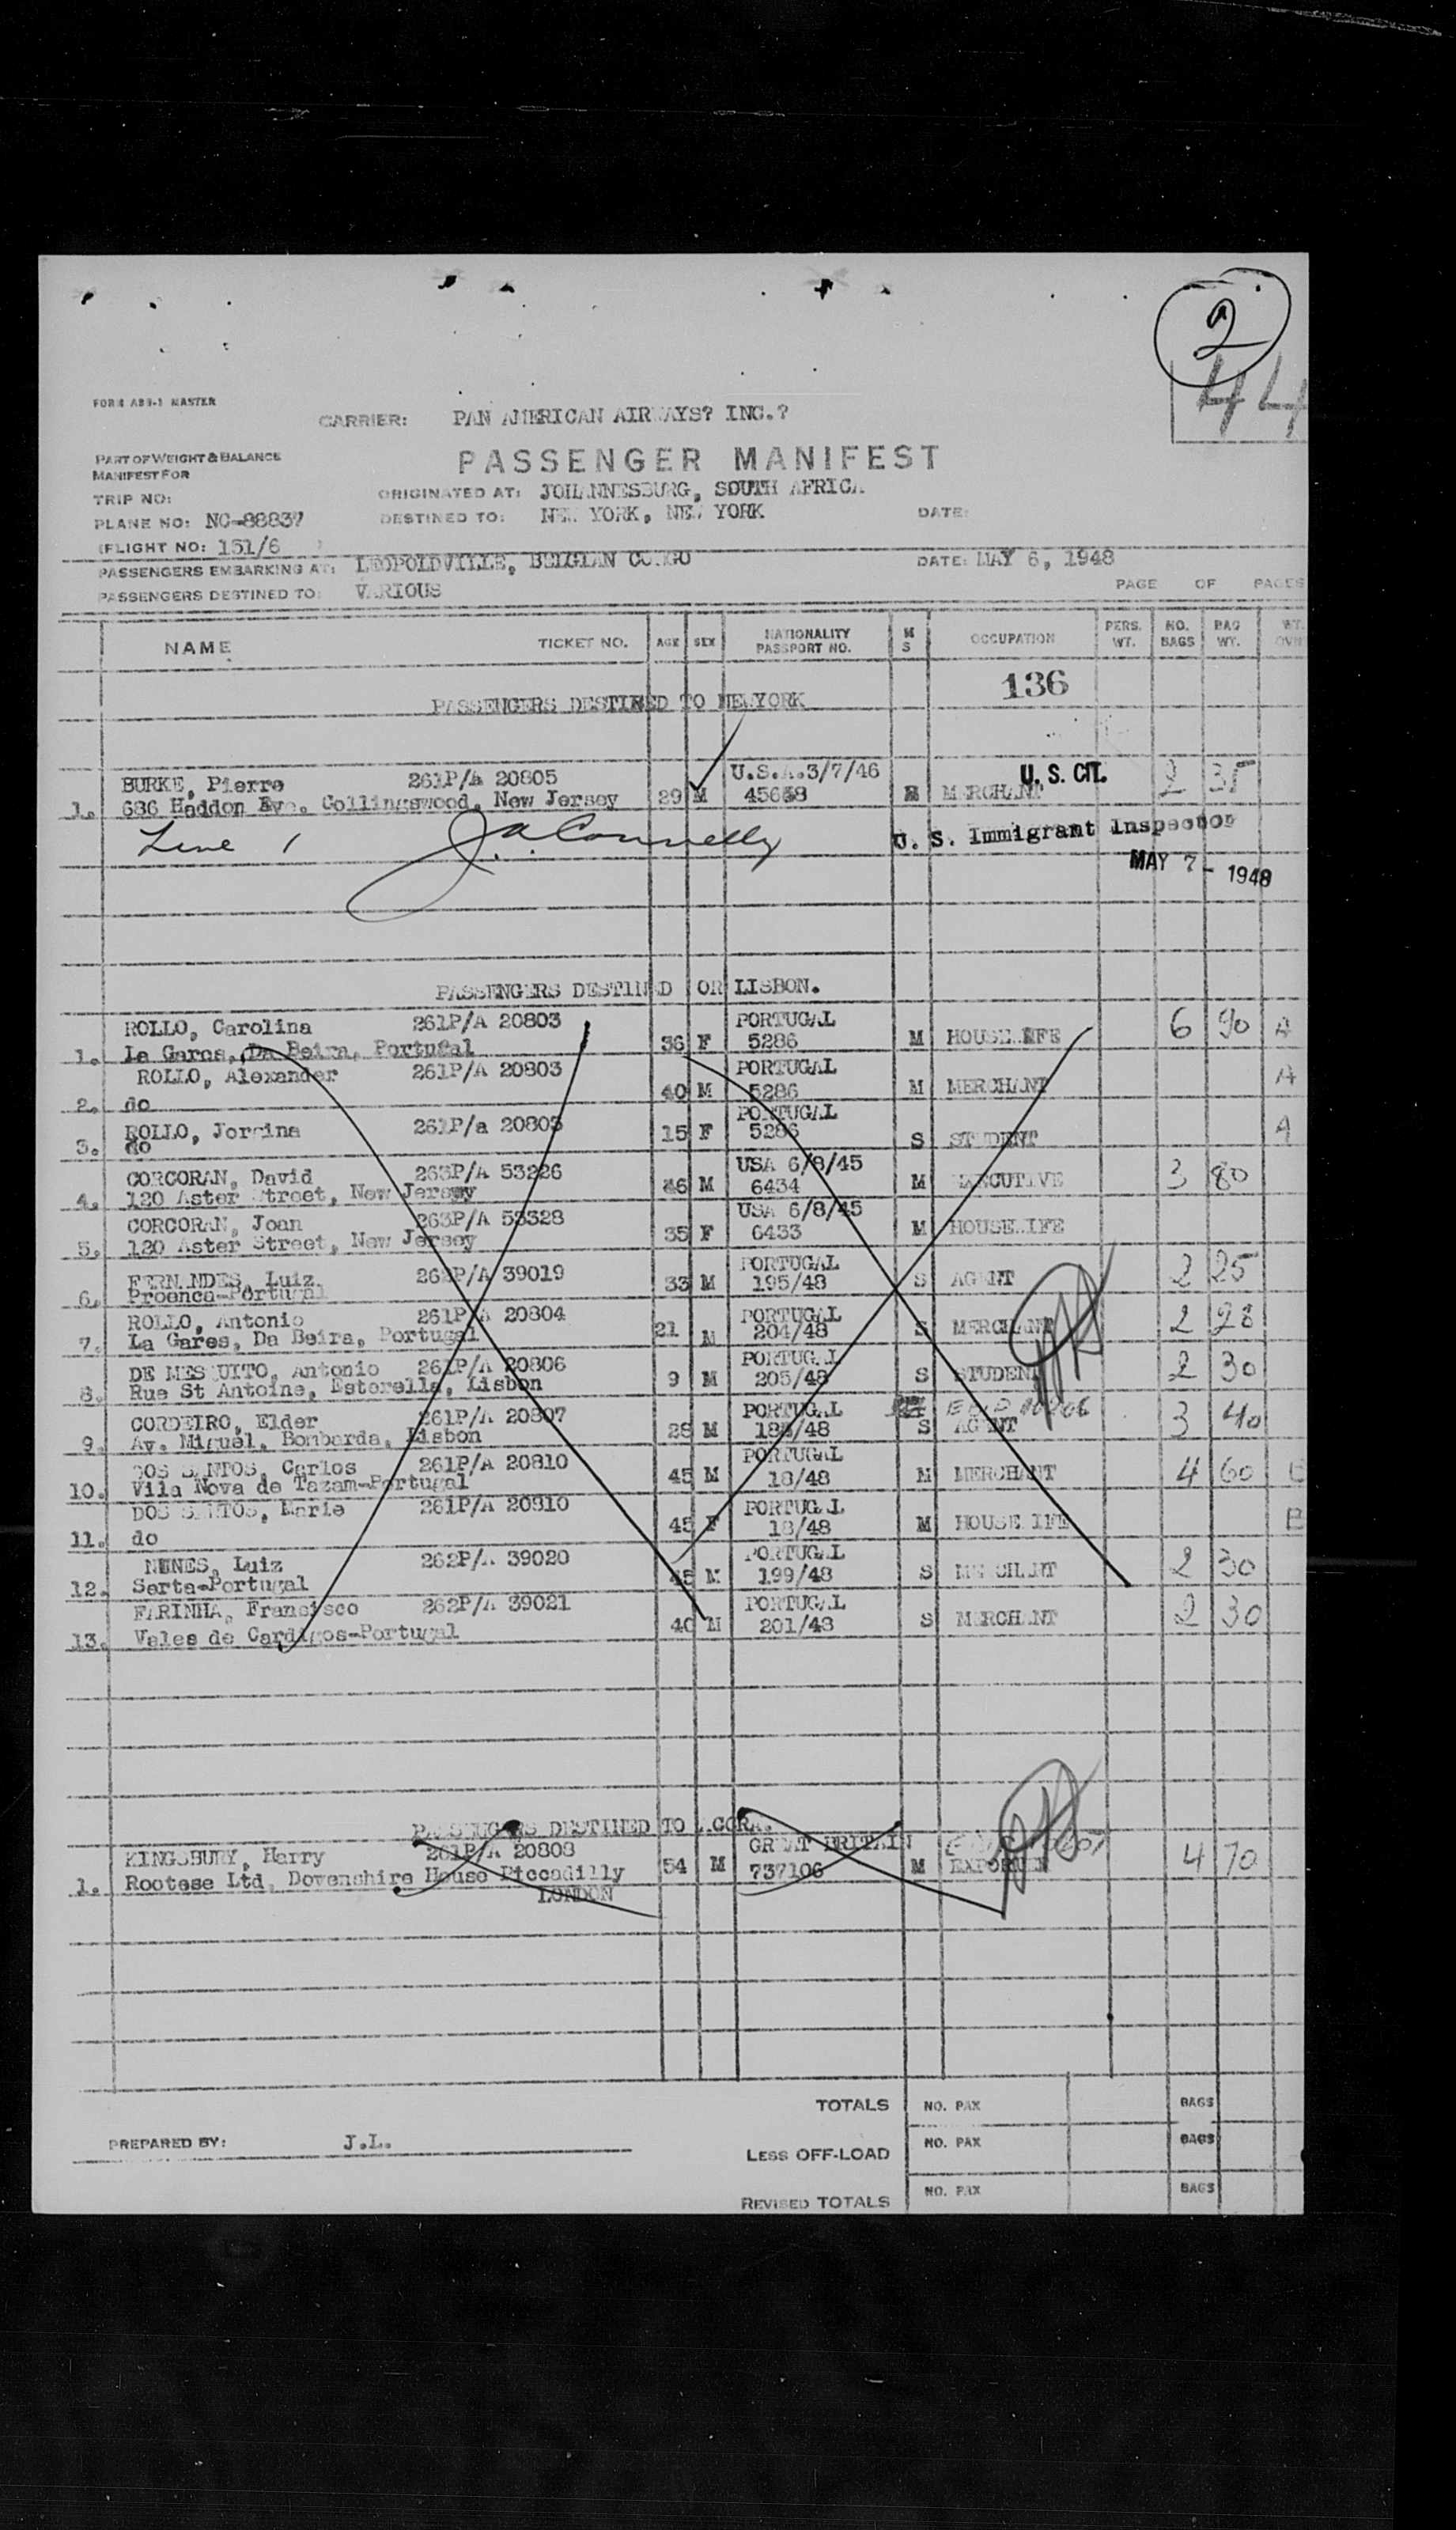 2
44
FORM AB9-1 MASTER
CARRIER: PAN AMERICAN AIRWAYS? INC.?
PART OF WEIGHT & BALANCE
MANIFEST FOR
PASSENGER MANIFEST
TRIP NO:
ORIGINATED AT: JOHANNESBURG, SOUTH AFRICA
PLANE NO: NC-88837
DESTINED TO: NEW YORK, NEW YORK DATE:
FLIGHT NO: 151/6
PASSENGERS EMBARKING AT: LEOPOLDVILLE, BELGIAN CONGO DATE: MAY 6, 1948
PASSENGERS DESTINED TO: VARIOUS PAGE OF PAGES
NAME TICKET NO. AGE SEX NATIONALITY PASSPORT NO. M S OCCUPATION PERS. WT. NO. BAGS BAG WT. WT.
136
PASSENGERS DESTINED TO NEWYORK
BURKE, Pierre 261P/A 20805 U.S.A.3/7/46 U. S. CIT. 2 35
1. 636 Haddon Ave. Collingswood, New Jersey 29 M MERCHANT
Line 1 J A Connelly U. S. Immigrant Inspector
MAY 7 - 1948
PASSENGERS DESTINED OR LISBON.
ROLLO, Carolina 261P/A 20803 PORTUGAL 6 90 A
1. La Garos, Da Beira, Portugal 36 F 5286 M HOUSEWIFE
ROLLO, Alexander 261P/A 20803 PORTUGAL A
2. do 40 M 5286 M MERCHANT
ROLLO, Jorgina 261P/a 20803 PORTUGAL A
3. do 15 F 5286 S STUDENT
CORCORAN, David 263P/A 53226 USA 6/8/45 3 80
4. 120 Aster Street, New Jersey 46 M 6434 M EXECUTIVE
CORCORAN, Joan 263P/A 53328 USA 6/8/45
5. 120 Aster Street, New Jersey 35 F 6433 M HOUSEWIFE
FERNANDES, Luiz 262P/A 39019 PORTUGAL 2 25
6. Proenca-Portugal 33 M 195/48 S AGENT
ROLLO, Antonio 261P/A 20804 PORTUGAL 2 28
7. La Gares, Da Beira, Portugal 21 M 204/48 S MERCHANT
DE MESQUITO, Antonio 261P/A 20806 PORTUGAL 2 30
8. Rue St Antoine, Estorella, Lisbon 9 M 205/48 S STUDENT
CORDEIRO, Elder 261P/A 20807 PORTUGAL 3 40
9. Av. Miguel, Bombarda, Lisbon 28 M S AGENT
DOS SANTOS, Carlos 261P/A 20810 PORTUGAL 4 60
10. Vila Nova de Tazam-Portugal 45 M 18/48 M MERCHANT
DOS SANTOS, Marie 261P/A 20810 PORTUGAL B
11. do 45 F 18/48 M HOUSEWIFE
NUNES, Luiz 262P/A 39020 PORTUGAL 2 30
12. Serta-Portugal 45 M 199/48 S MERCHANT
FARINHA, Francisco 262P/A 39021 PORTUGAL 2 30
13. Vales de Cardigos-Portugal 40 M 201/48 S MERCHANT
PASSENGERS DESTINED TO ACCRA.
KINGSBURY, Harry 261P/A 20808 GREAT BRITAIN 4 70
1. Rootese Ltd. Dovenshire House Piccadilly 54 M 737106 M
LONDON
TOTALS NO. PAX BAGS
PREPARED BY: J.L.
LESS OFF-LOAD NO. PAX BAGS
REVISED TOTALS NO. PAX BAGS